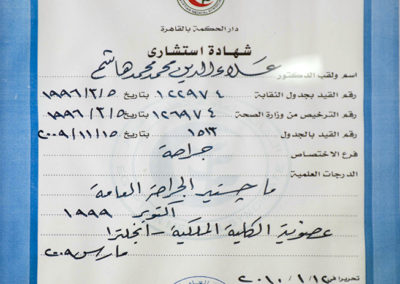 دار الحكمة بالقاهرة
شهادة استشارى
اسم ولقب الدكتور علاء الدين محمد محمد هاشم
رقم القيد بجدول النقابة ١٢٢٩٧٤ بتاريخ ١٩٩٦/٣/٥
رقم الترخيص من وزارة الصحة ١٢٦٩٧٤ بتاريخ ١٩٩٦/٣/٥
رقم القيد بالجدول ١٥١٣ بتاريخ ٢٠٠٩/١١/١٥
فرع الاختصاص جراحة
الدرجات العلمية
ماجستير الجراحة العامة
أكتوبر ١٩٩٩
عضوية الكلية الملكية - انجلترا
مارس ٢٠٠٩
تحريرا فى ٢٠١٠/١/١٢